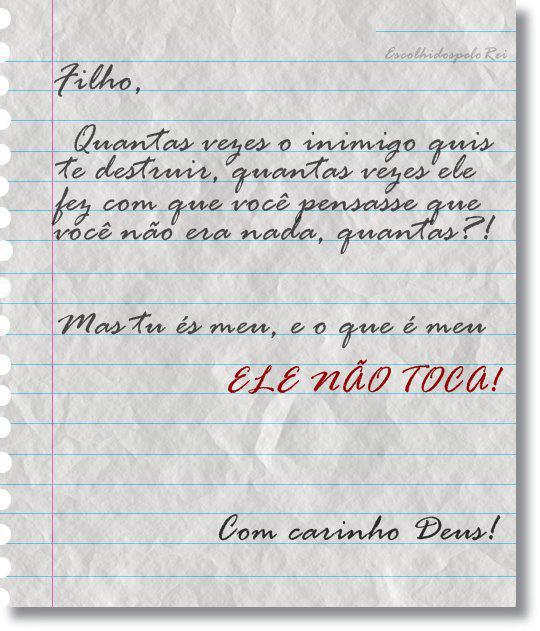 EscolhidospeloRei
Filho,
Quantas vezes o inimigo quis
te destruir, quantas vezes ele
fez com que você pensasse que
você não era nada, quantas?!
Mas tu és meu, e o que é meu
ELE NÃO TOCA!
Com carinho Deus!